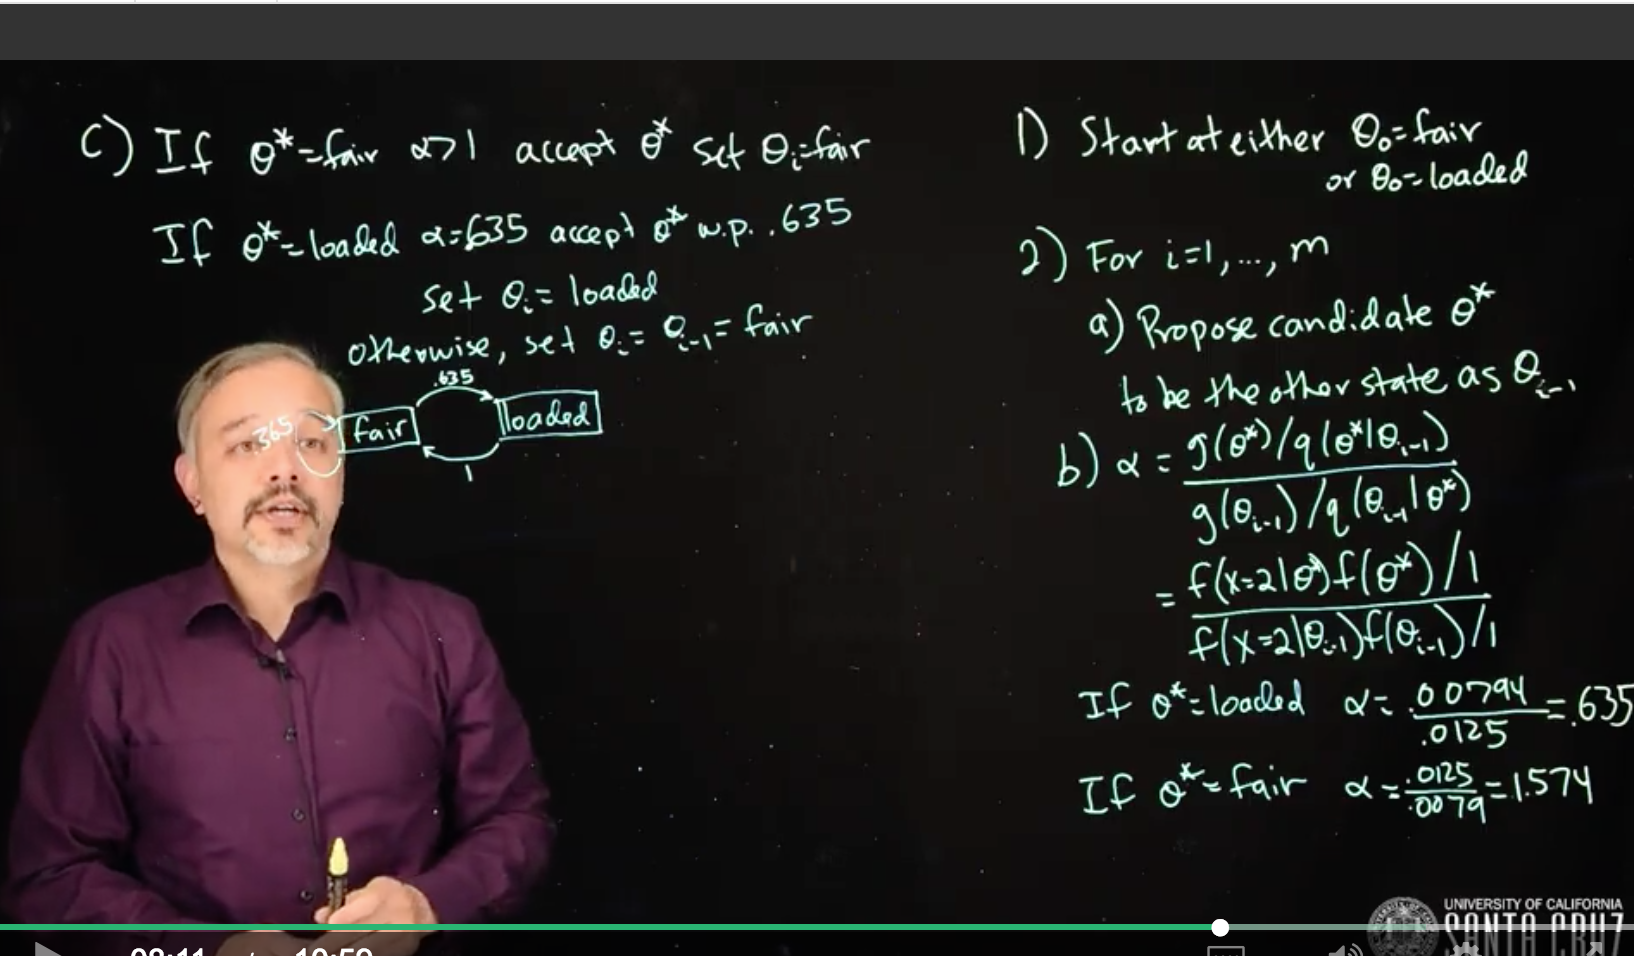 C) If θ*=fair α>1 accept θ* set θᵢ=fair
If θ*=loaded α=.635 accept θ* w.p. .635
set θᵢ= loaded
otherwise, set θᵢ= θᵢ₋₁= fair
.635
.365
fair
loaded
1
1) Start at either θ₀=fair
or θ₀=loaded
2) For i=1,...,m
a) Propose candidate θ*
to be the other state as θᵢ₋₁
b) α = g(θ*)/q(θ*|θᵢ₋₁)
g(θᵢ₋₁)/q(θᵢ₋₁|θ*)
= f(x=2|θ*)f(θ*)/1
f(x=2|θᵢ₋₁)f(θᵢ₋₁)/1
If θ*=loaded α= .00794 =.635
.0125
If θ*=fair α= .0125 =1.574
.0079
UNIVERSITY OF CALIFORNIA
SANTA CRUZ
08:11 / 10:59